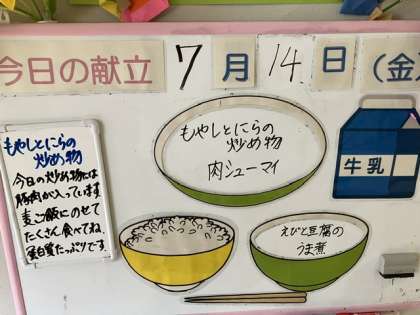 今日の献立 7月14日(金)
もやしとにらの
炒め物
今日の炒め物には
豚肉が入っています。
麦ご飯にのせて
たくさん食べてね。
蛋白質たっぷりです
もやしとにらの
炒め物
肉シューマイ
牛乳
えびと豆腐の
うま煮